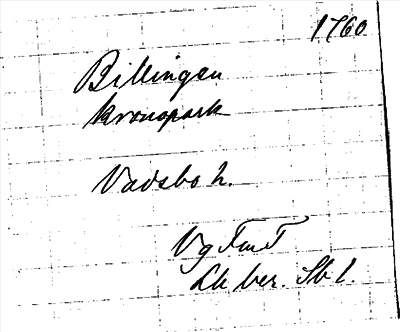 1760
Billingen
kronopark
Vadsbo h.
Vg FmT
Lk ber. Sb 1.